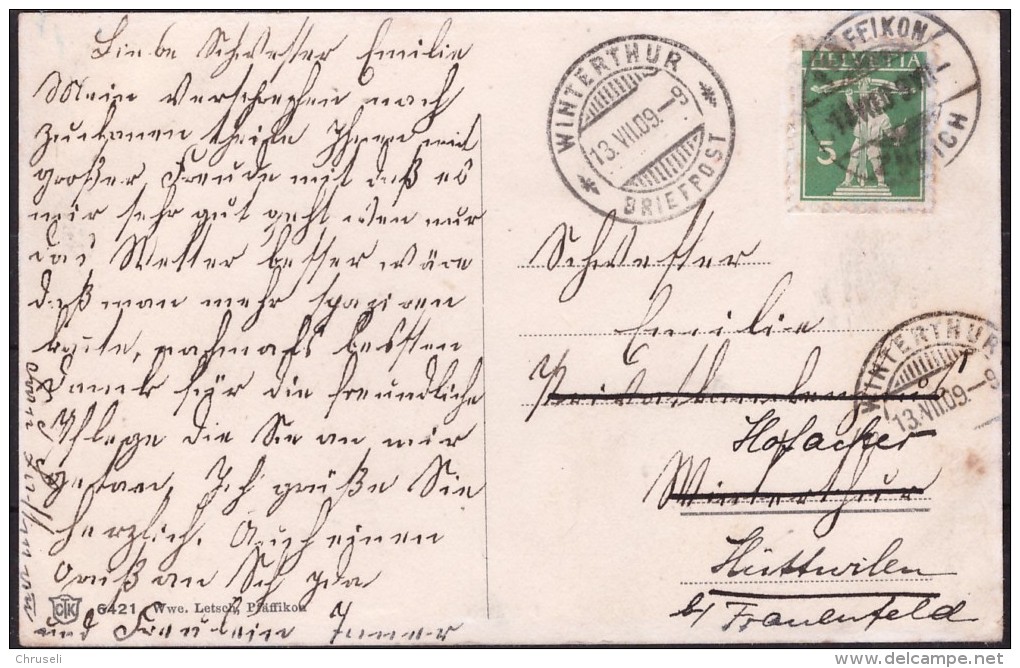 Liebe Schwester Emilie
Mein versprechen nach
zukomen theile Ihnen mit
großer Freude mit daß es
mir sehr gut geht wen nur
das Wetter besser wäre
daß man mehr spaziren
könte, nochmals besten
Dank für die freundliche
Pflege die Sie an mir
getan. Ich grüße Sie
herzlich. Auch einen
Gruß an Sch Ida
und Fraulein
6421 Wwe. Letsch, Pfäffikon
CTK
WINTERTHUR
13.VII.09.
BRIEFPOST
PFÄFFIKON
ZÜRICH
HELVETIA
5
Schwester
Emilie
Hofacher
Winterthur
Hüttwilen
b/ Frauenfeld
WINTERTHUR
13.VII.09.
Chruseli
delcampe.net